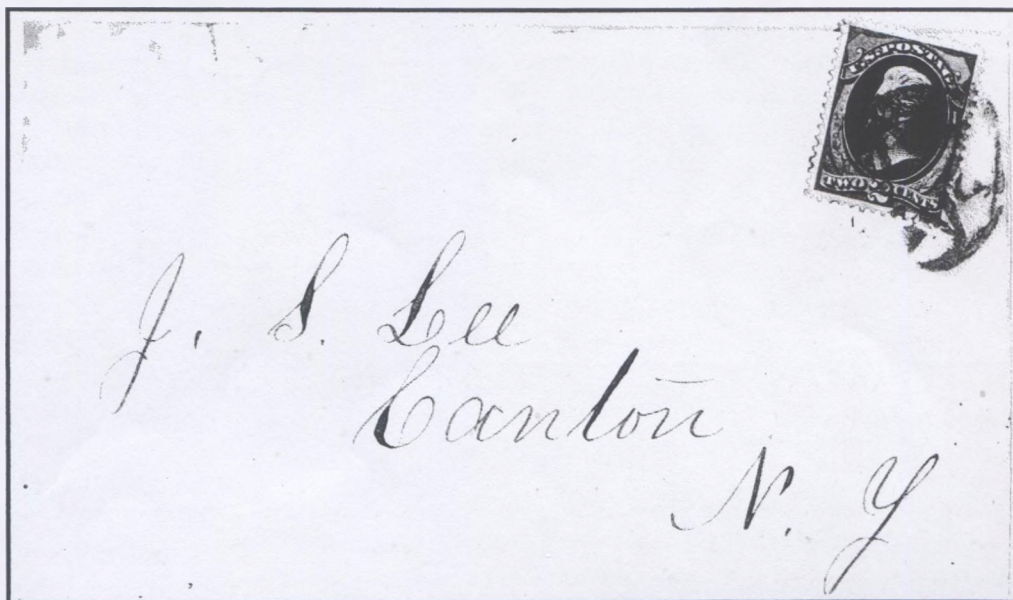 U.S. POSTAGE
TWO 2 CENTS
J. S. Lee
Canton
N. Y